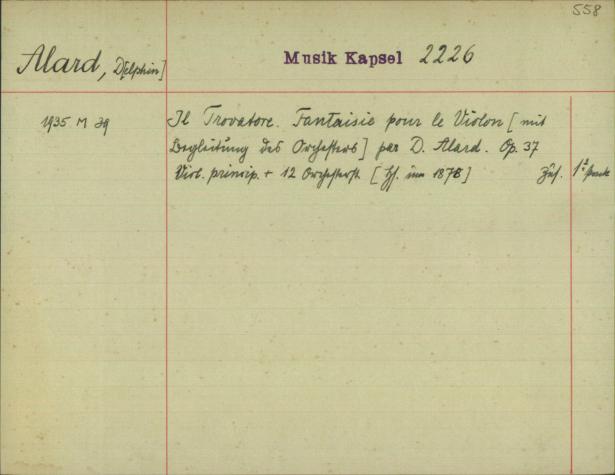 558
Alard, D[elphin]
Musik Kapsel 2226
1935 M 39
Il Trovatore. Fantaisie pour le Violon [mit
Begleitung des Orchesters] par D. Alard. Op. 37
Viol. prinzip. + 12 Orchesterst. [Hs. um 1878]